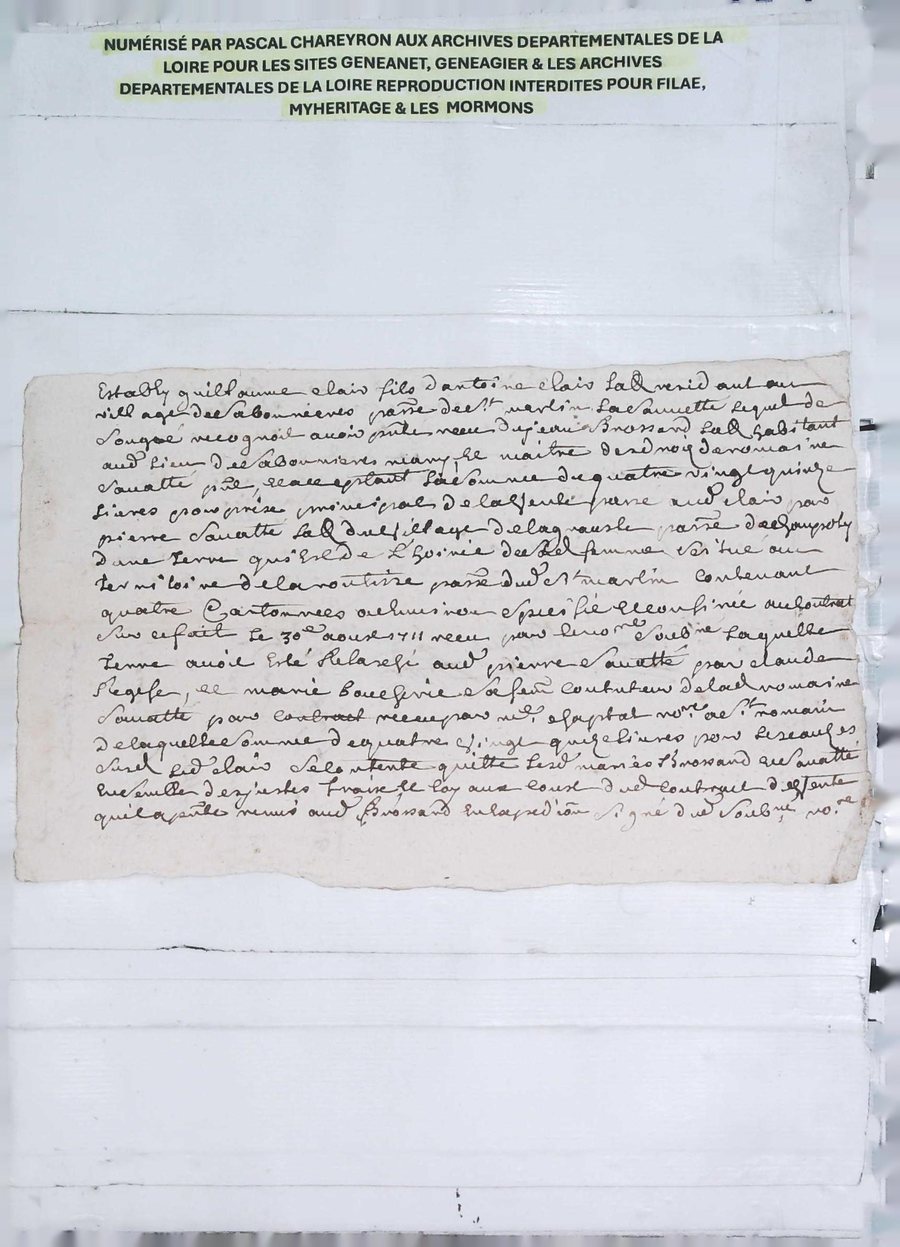 NUMÉRISÉ PAR PASCAL CHAREYRON AUX ARCHIVES DEPARTEMENTALES DE LA
LOIRE POUR LES SITES GENEANET, GENEAGIER & LES ARCHIVES
DEPARTEMENTALES DE LA LOIRE REPRODUCTION INTERDITES POUR FILAE,
MYHERITAGE & LES MORMONS
Estably guillaume clair fils d'antoine clair lab residant au
village de Sabonnieres parse de St martin la Sauvette lequel de
son gré recognoit avoir pnte receu de jean Brossard lab habitant
aud lieu de Sabonnieres mary et maitre des droig de romaine
Savatte pnte et acceptant la Somme de quatre vingt quinze
livres pour prix principal de la vente passe aud clair par
pierre Savatte lab du village de la parse de
d'une terre qui Est de l'hoirie de sad femme Scitué au
territoire de la routisse parse dud St martin contenant
quatre Cartonnees achus non Specifié et confinée au contrat
Sur ce fait le 30e aoust 1711 receu par le nore Soubne laquelle
terre avoit Esté Relasché aud pierre Savatte par claude
et marie Sa fem cotuteur de lad romaine
Savatte par contract receu par me chaptal nore a St romain
de laquelle Somme de quatre vingt quinze livres pour les causes
Susd led clair Se contente quitte lesd mariés Brossard et Savatte
Ensemble des justes fraix et loyaux coust dud contract de Vente
qu'il a pnte remis aud Brossard En Expedion Signé dud Soubne nore